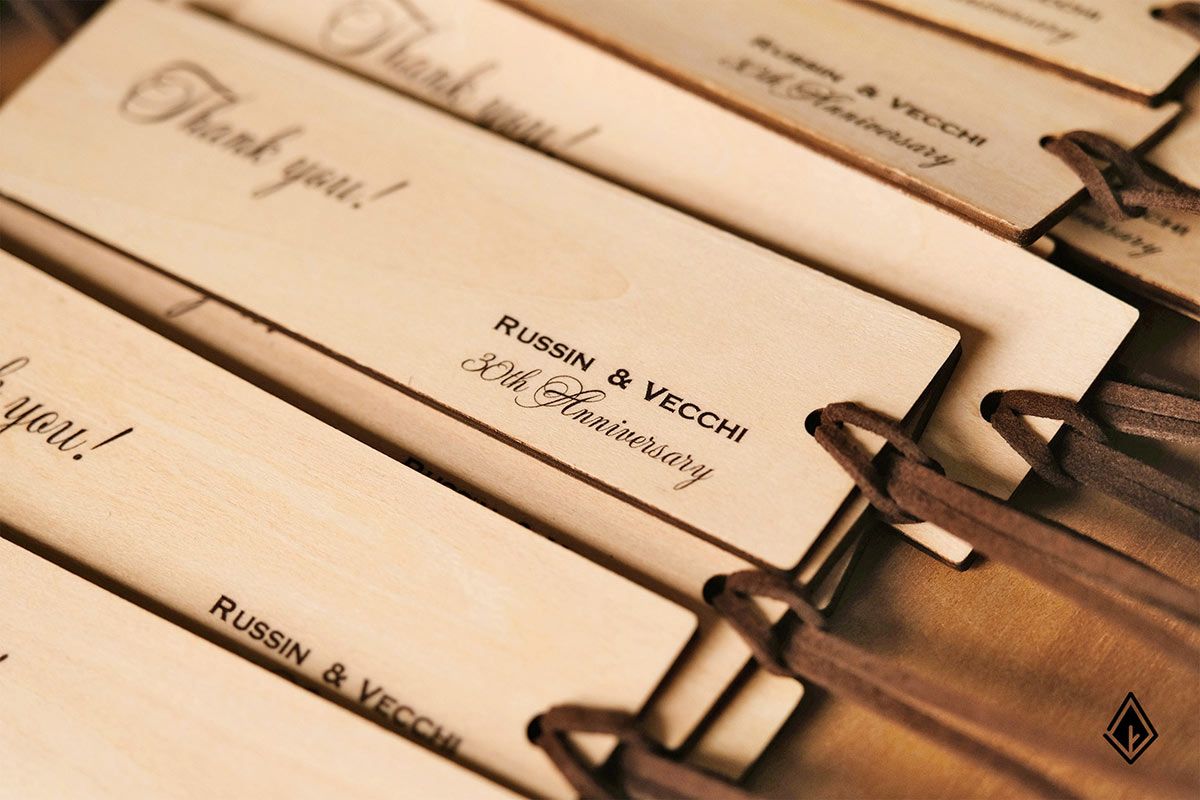 Thank you!
RUSSIN & VECCHI
30th Anniversary
Thank you!
RUSSIN & VECCHI
30th Anniversary
you!
RUSSIN & VECCHI